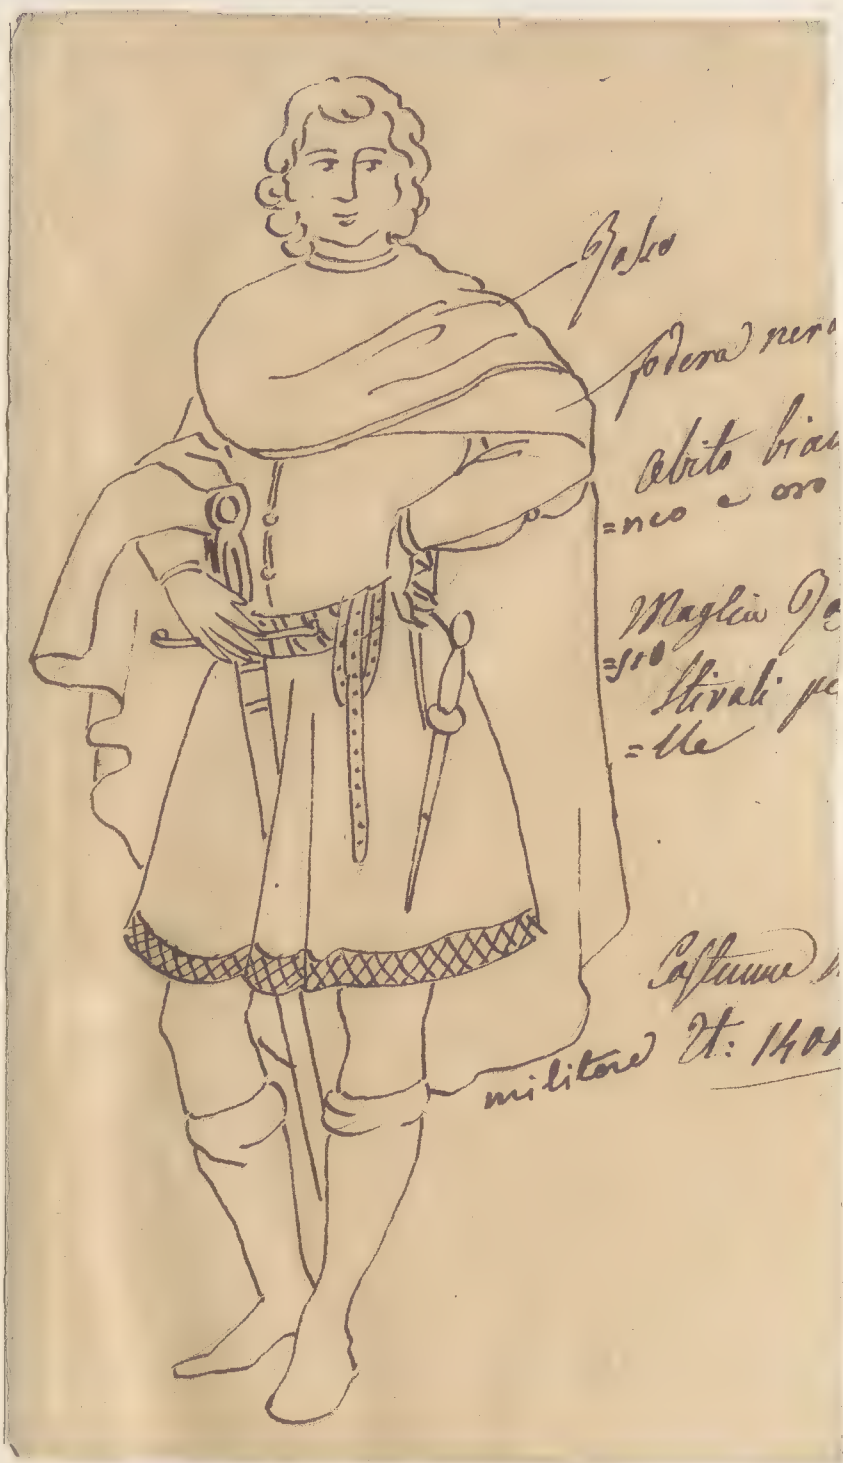 Rosso
fodera nera
abito bian
=nco e oro
Maglia Ro
=sso
Stivali pe
=lle
Costume
militare It: 1400